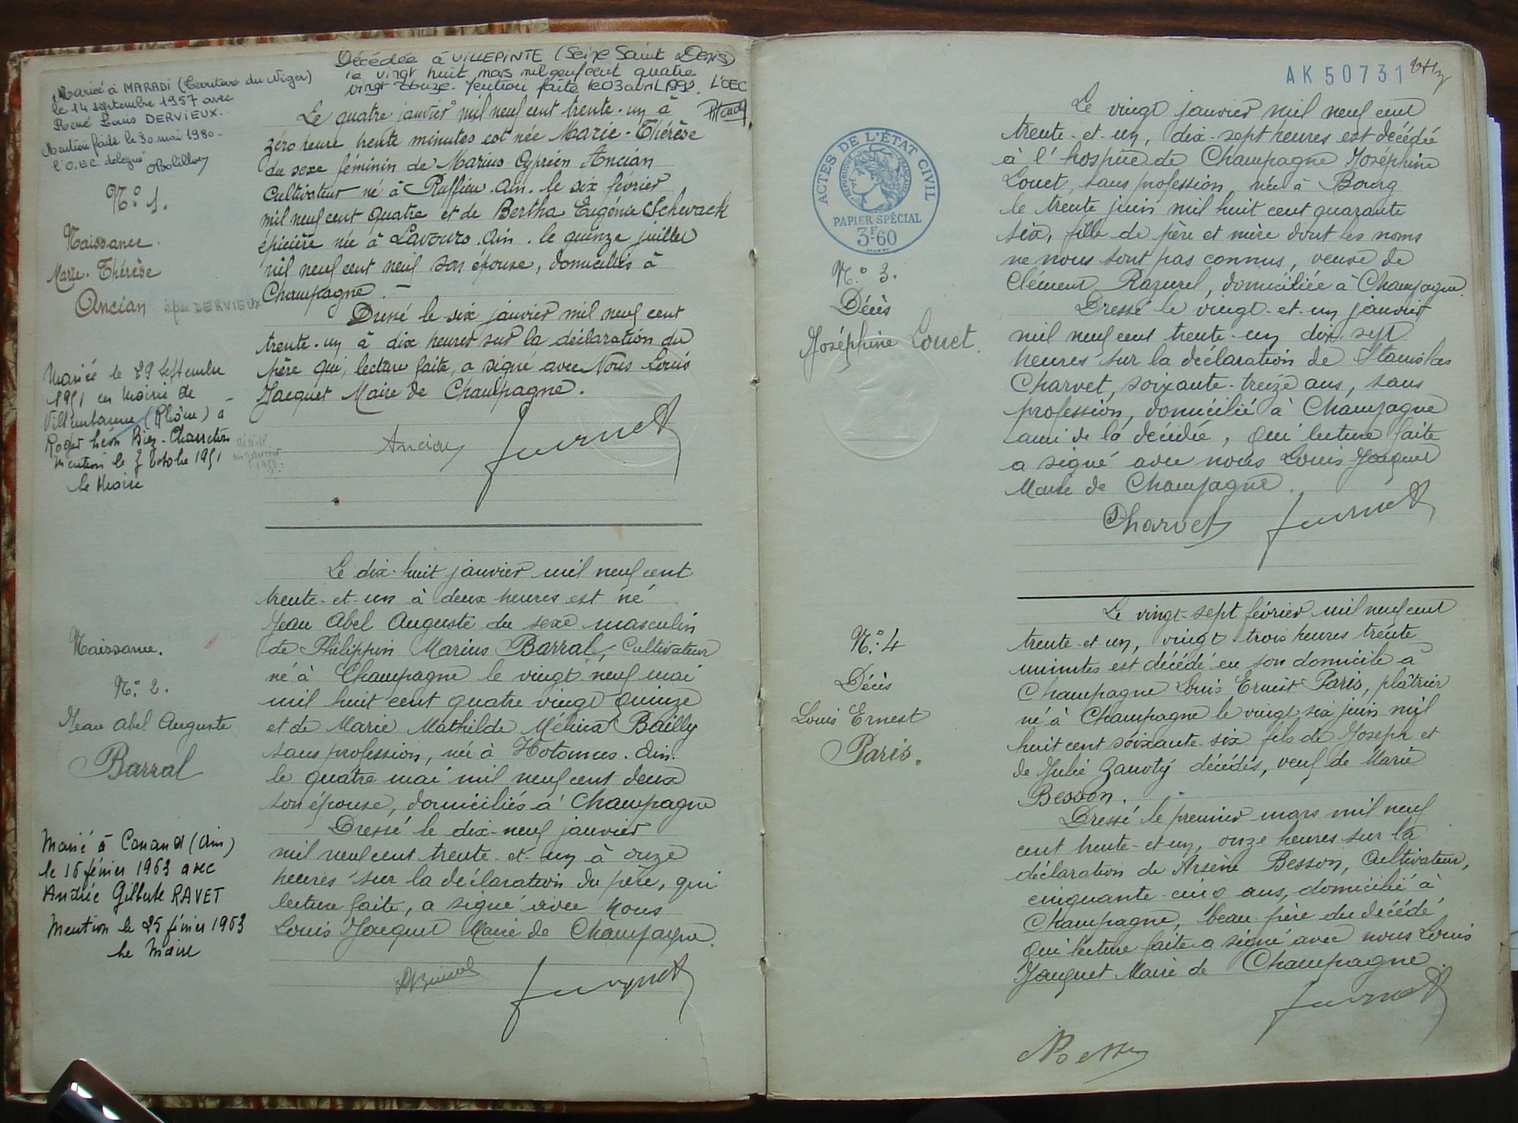 Décédée à VILLEPINTE (Seine Saint Denis)
le vingt huit mars mil neuf cent quatre
vingt douze. Mention faite le 03 avril 1992. L'OEC
Mariée à MARADI (Territoire du Niger)
le 14 septembre 1957 avec
René Louis DERVIEUX.
Mention faite le 30 mai 1980.
l'O.E.C. délégué
N° 1.
Naissance.
Marie-Thérèse
Ancian épse DERVIEUX
Mariée le 29 septembre
1951 en mairie de
Villeurbanne (Rhône) à
Roger Léon
Mention le 3 Octobre 1951
le Maire
Le quatre janvier mil neuf cent trente-un à
zéro heure trente minutes est née Marie-Thérèse
du sexe féminin de Marius Cyprien Ancian
cultivateur né à Ruffieu. Ain. le six février
mil neuf cent quatre et de Bertha Eugénie Schwack
épicière née à Lavours. Ain. le quinze juillet
mil neuf cent neuf son épouse, domiciliés à
Champagne. –
Dressé le six janvier mil neuf cent
trente-un à dix heures sur la déclaration du
père qui, lecture faite, a signé avec Nous Louis
Jacquet Maire de Champagne.
Ancian
Naissance.
N° 2.
Jean Abel Auguste
Barral
Marié à Conand (Ain)
le 16 février 1963 avec
Andrée Gilberte RAVET
Mention le 25 février 1963
le Maire
Le dix-huit janvier mil neuf cent
trente-et-un à deux heures est né
Jean Abel Auguste du sexe masculin
de Philippin Marius Barral, Cultivateur
né à Champagne le vingt neuf mai
mil huit cent quatre vingt quinze
et de Marie Mathilde Mélina Bailly
sans profession, née à Hotonnes. Ain.
le quatre mai mil neuf cent deux
son épouse, domiciliés à Champagne
Dressé le dix-neuf janvier
mil neuf cent trente-et-un à onze
heures sur la déclaration du père, qui
lecture faite, a signé avec Nous
Louis Jacquet Maire de Champagne.
AK 50731
ACTES DE L'ÉTAT CIVIL
PAPIER SPÉCIAL
3F60
N° 3.
Décès
Joséphine Louet.
Le vingt janvier mil neuf cent
trente-et-un, dix-sept heures est décédée
à l'hospice de Champagne Joséphine
Louet, sans profession, née à Bourg
le trente juin mil huit cent quarante
six, fille de père et mère dont les noms
ne nous sont pas connus, veuve de
Clément Razurel, domiciliée à Champagne.
Dressé le vingt-et-un janvier
mil neuf cent trente-un dix sept
heures sur la déclaration de Stanislas
Charvet, soixante-treize ans, sans
profession, domicilié à Champagne
ami de la décédée, qui lecture faite
a signé avec nous Louis Jacquet
Maire de Champagne.
Charvet
N° 4
Décès
Louis Ernest
Paris.
Le vingt-sept février mil neuf cent
trente-et-un, vingt trois heures trente
minutes est décédé en son domicile à
Champagne Louis Ernest Paris, plâtrier
né à Champagne le vingt six juin mil
huit cent soixante-six fils de Joseph et
de Julie Zanoty décédés, veuf de Marie
Besson.
Dressé le premier mars mil neuf
cent trente-et-un, onze heures sur la
déclaration de Arsène Besson, Cultivateur,
cinquante-cinq ans, domicilié à
Champagne, beau-père du décédé
qui lecture faite a signé avec nous Louis
Jacquet Maire de Champagne.